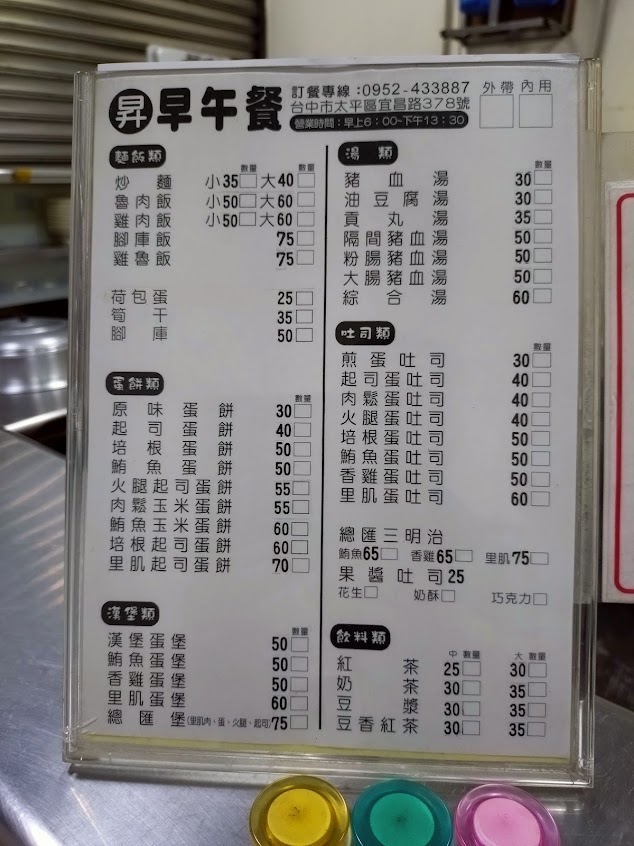 昇 早午餐
訂餐專線：0952-433887
台中市太平區宜昌路378號
營業時間：早上6：00~下午13：30
外帶 內用
麵飯類
數量 數量
炒麵 小35 大40
魯肉飯 小50 大60
雞肉飯 小50 大60
腳庫飯 75
雞魯飯 75
荷包蛋 25
筍干 35
腳庫 50
蛋餅類
數量
原味蛋餅 30
起司蛋餅 40
培根蛋餅 50
鮪魚蛋餅 50
火腿起司蛋餅 55
肉鬆玉米蛋餅 55
鮪魚玉米蛋餅 60
培根起司蛋餅 60
里肌起司蛋餅 70
漢堡類
數量
漢堡蛋堡 50
鮪魚蛋堡 50
香雞蛋堡 50
里肌蛋堡 60
總匯堡(里肌肉、蛋、火腿、起司) 75
湯類
數量
豬血湯 30
油豆腐湯 30
貢丸湯 35
隔間豬血湯 50
粉腸豬血湯 50
大腸豬血湯 50
綜合湯 60
吐司類
數量
煎蛋吐司 30
起司蛋吐司 40
肉鬆蛋吐司 40
火腿蛋吐司 40
培根蛋吐司 50
鮪魚蛋吐司 50
香雞蛋吐司 50
里肌蛋吐司 60
總匯三明治
鮪魚65 香雞65 里肌75
果醬吐司25
花生 奶酥 巧克力
飲料類
中 數量 大 數量
紅茶 25 30
奶茶 30 35
豆漿 30 35
豆香紅茶 30 35